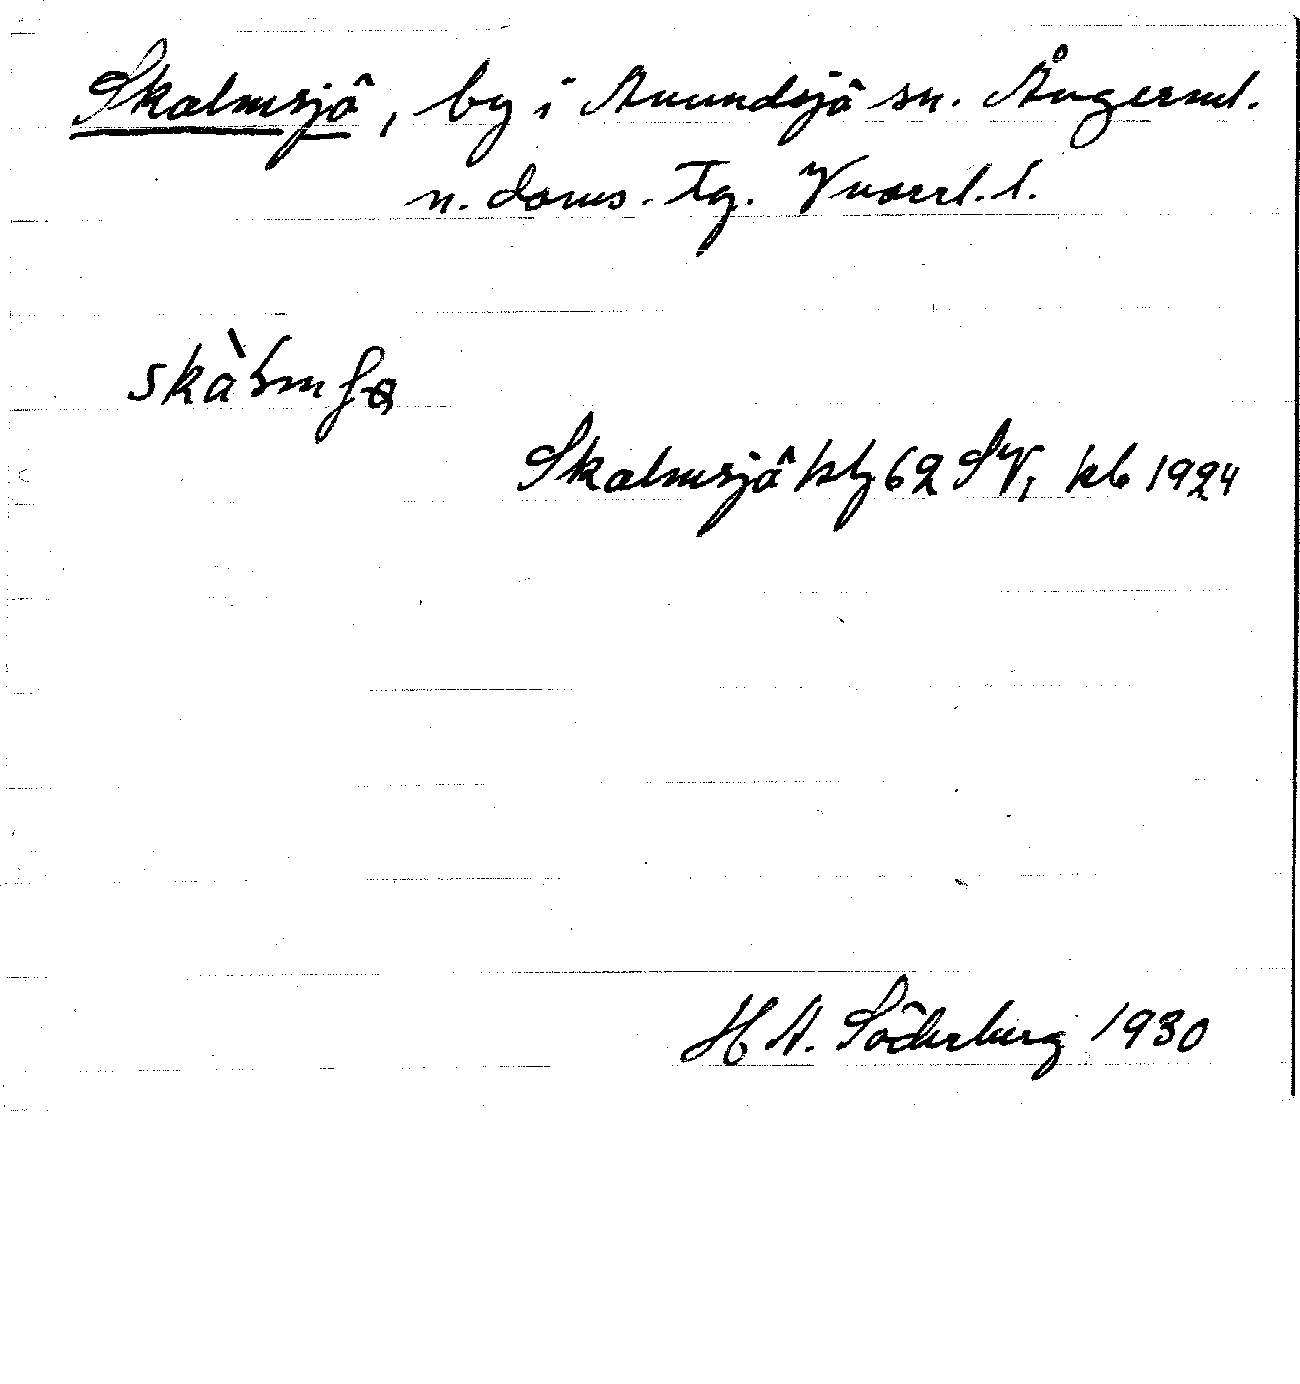 Skalmsjö, by i Anundsjö sn. Ångerml.
n. doms. Tg. Vnorrl. l.
skàlmʃɵ
Skalmsjö blg 62 SV, kb 1924
H A. Söderberg 1930